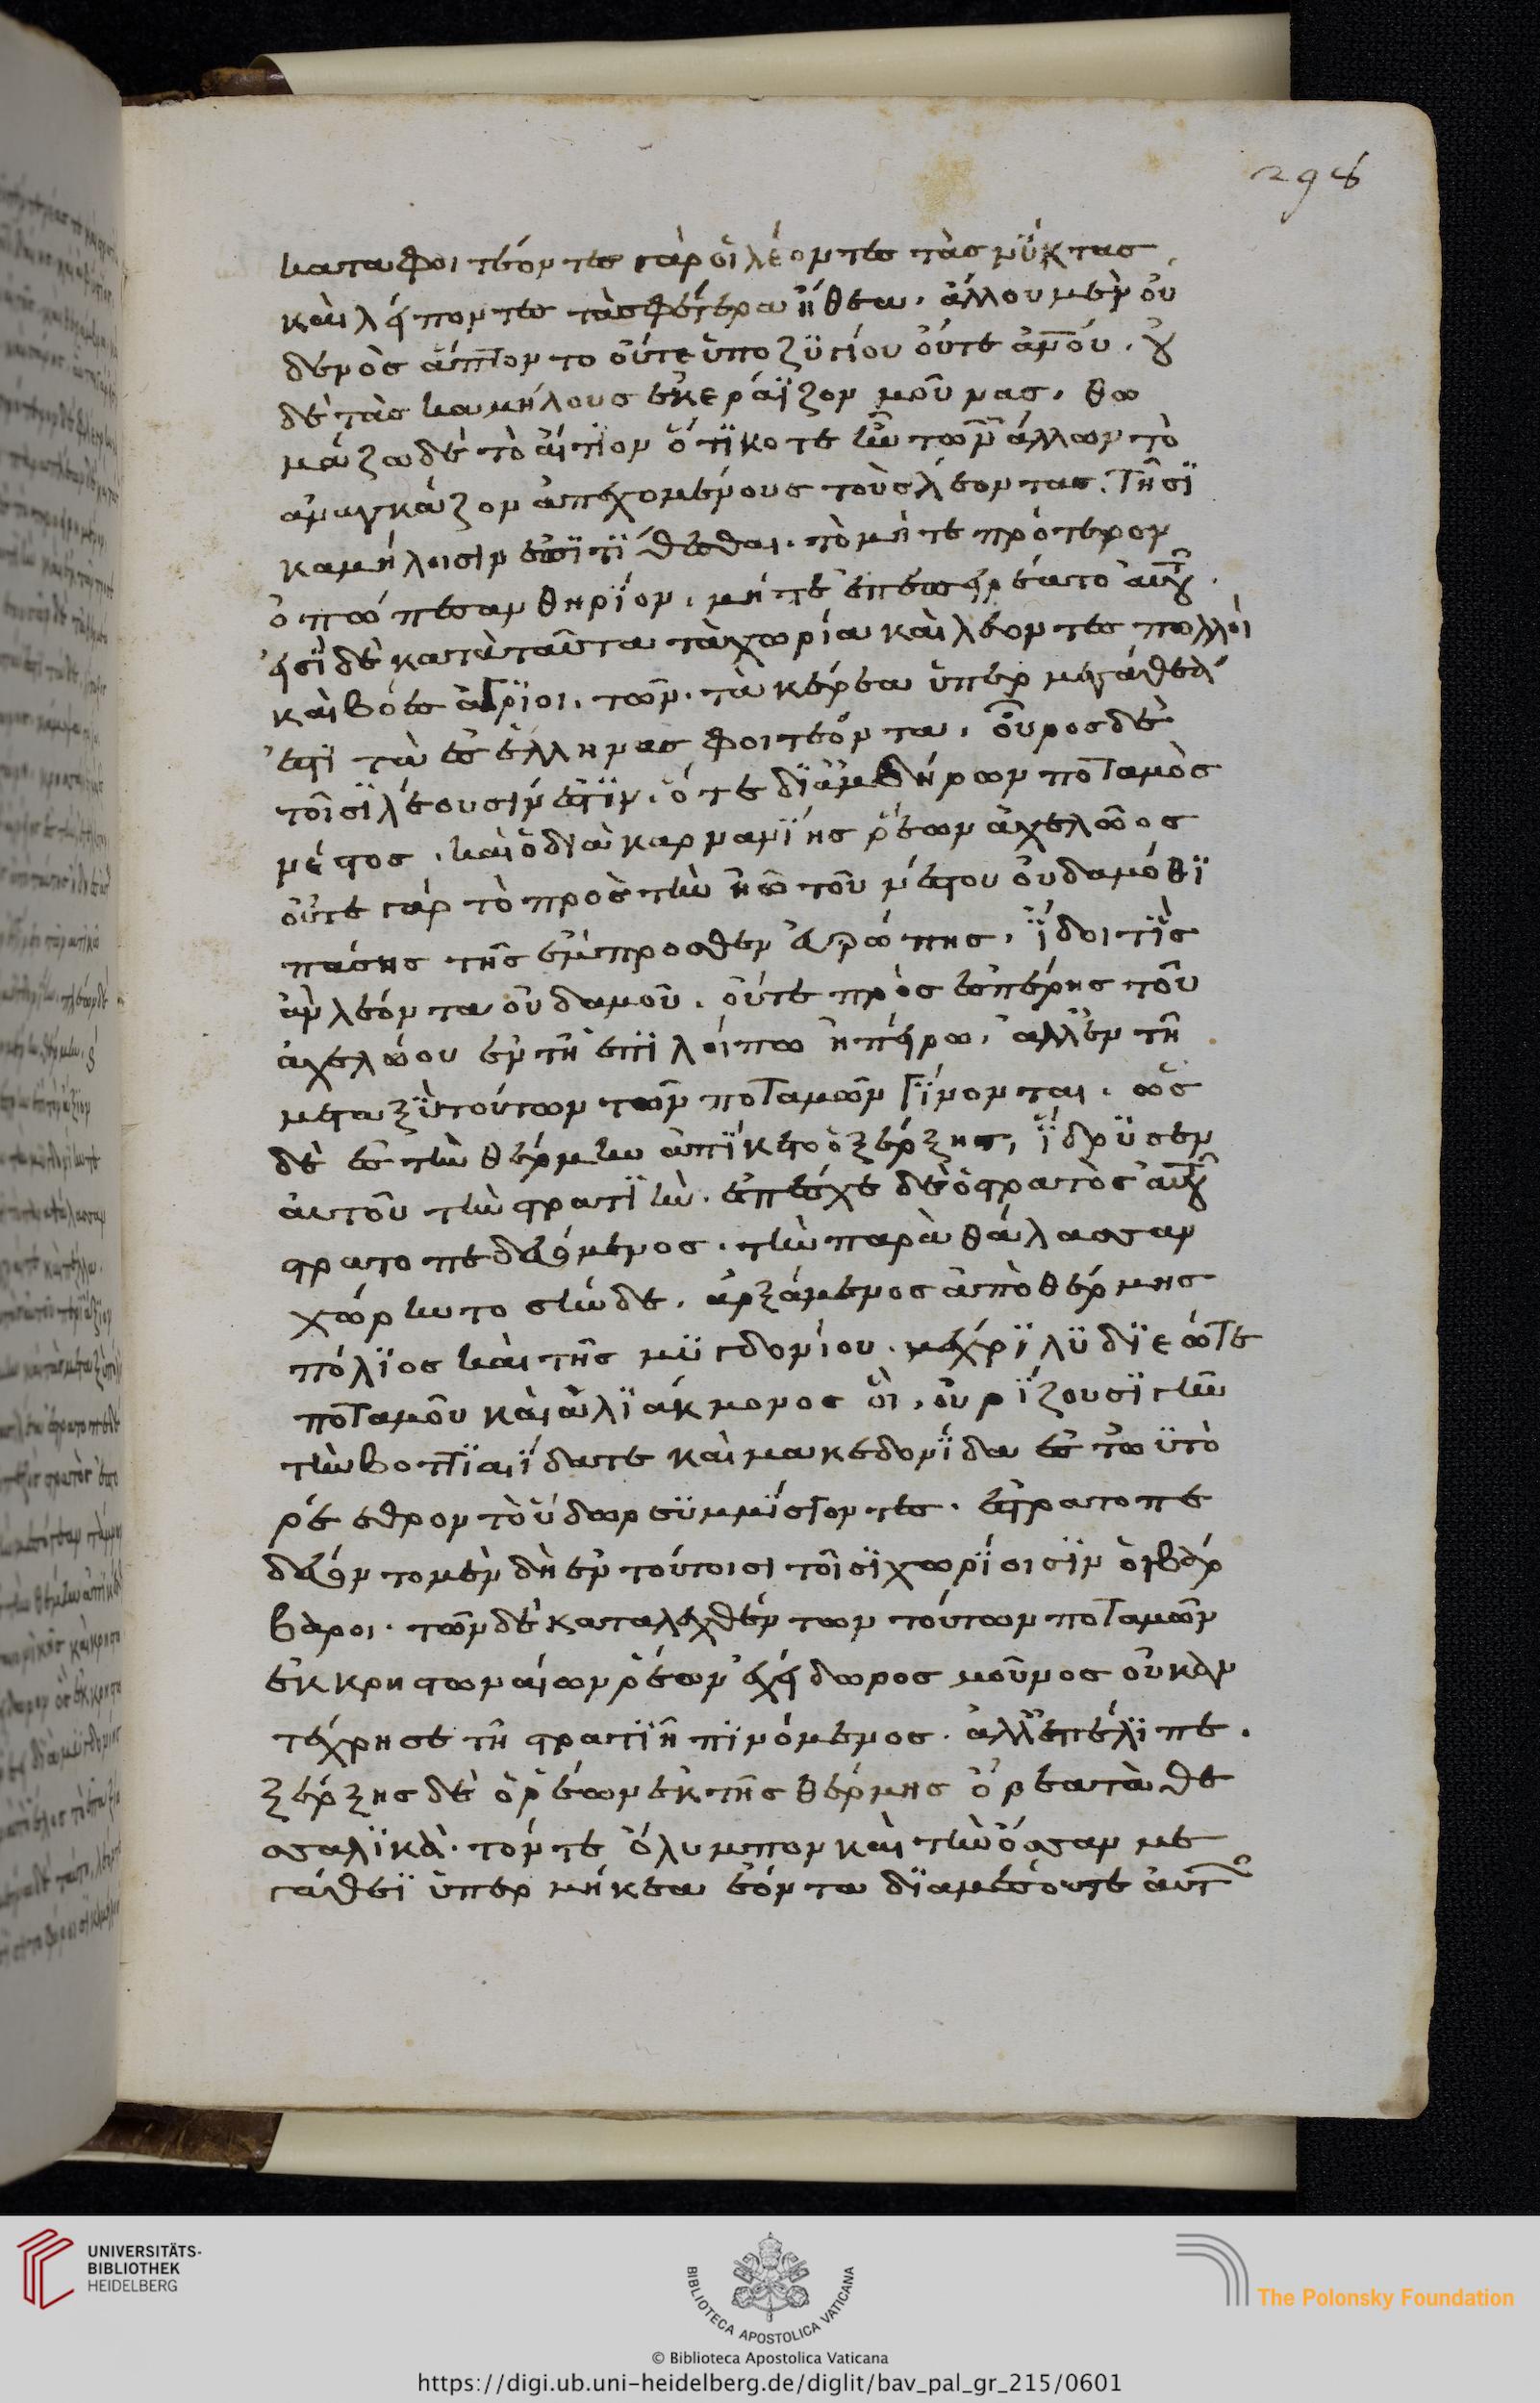 298
καταφοιτέοντες γὰρ οἱ λέοντες τὰς νύκτας
καὶ λείποντες τὰ σφέτερα ἤθεα. ἄλλου μὲν οὐ
δενὸς ἅπτοντο οὔτε ὑποζϋγίου οὔτε ἀνου. οἱ
δὲ τὰς καμήλους ἐκεράϊζον μούνας. θω
μάζω δὲ τὸ αἴτϊον ὅ τϊ κοτε ἦν τῶν ἄλλων τὸ
ἀναγκάζον ἀπεχομένους τοὺς λέοντας. τῆσϊ
καμήλοισιν ἐπϊτίθεσθαι. τὸ μήτε πρότερον
ὀπώπεσαν θηρίον. μήτε ἐπεπειρέατο αὐτοῦ.
εἰσὶ δὲ κατὰ ταῦτα τὰ χωρία καὶ λέοντες πολλοὶ
καὶ βόες ἄγρϊοι. τῶν. τὰ κέρεα ὑπερμεγάθεά
ἐστϊ τὰ ἐς ἕλληνας φοιτεόντα. οὖρος δὲ
τοῖσϊ λέουσιν ἐστϊν. ὅ τε δϊ ἀβδήρων ποταμὸς
νέστος. καὶ ὁ διὰ καρνανίης ῥέων ἀχελῶος
οὔτε γὰρ τὸ πρὸς τὴν ἠῶ τοῦ νέστου οὐδαμόθϊ
πάσης τῆς ἔμπροσθεν εὐρώπης. ἴδοι τὶς
ἂν λέοντα οὐδαμοῦ. οὔτε πρὸς ἑσπέρης τοῦ
ἀχελώου ἐν τῆ ἐπϊλοίπω ἠπείρω. ἀλλ' ἐν τῆ
μεταξὺ τούτων τῶν ποταμῶν γίνονται. ὡς
δὲ ἐς τὴν θέρμην ἀπίκετο ὁ ξέρξης, ἵδρϋσεν
αὐτοῦ τὴν στρατϊὴν. ἐπέσχε δὲ ὁ στρατὸς αὐτοῦ
στρατοπεδευόμενος. τὴν παρὰ θάλασσαν
χώρην τοσήνδε. ἀρξάμενος ἀπὸ θέρμης
πόλϊος καὶ τῆς μϋγδονίου. μέχρϊ λϋδϊεώτε
ποταμοῦ καὶ ἁλϊάκμονος οἳ, οὐρίζουσϊ γῆν
τὴν βοττϊαιΐδατε καὶ μακεδονΐδα ἐς τωϋτὸ
ῥέεθρον τὸ ὕδωρ συμμίσγοντες. ἐστρατοπε
δεύοντο μὲν δὴ ἐν τούτοισι τοῖσϊ χωρίοισϊν οἱ βάρ
βαροι. τῶν δὲ καταλεχθέντων τούτων ποταμῶν
ἐκ κρηστωναίων ῥέων ἐχείδωρος μοῦνος οὐκ ἀν
τέχρησε τῆ στρατϊῆ πϊνόμενος. ἀλλ' ἐπέλϊπε.
ξέρξης δὲ ὁρέων ἐκ τῆς θέρμης ὄρεα τὰ θε
σσαλϊκὰ. τόν τε ὄλυμπον καὶ τὴν ὄσσαν με
γάθεϊ ὑπερμήκεα ἐόντα δϊαμέσου τε αὐτῶ
UNIVERSITÄTS-
BIBLIOTHEK
HEIDELBERG
BIBLIOTECA APOSTOLICA VATICANA
The Polonsky Foundation
© Biblioteca Apostolica Vaticana
https://digi.ub.uni-heidelberg.de/diglit/bav_pal_gr_215/0601